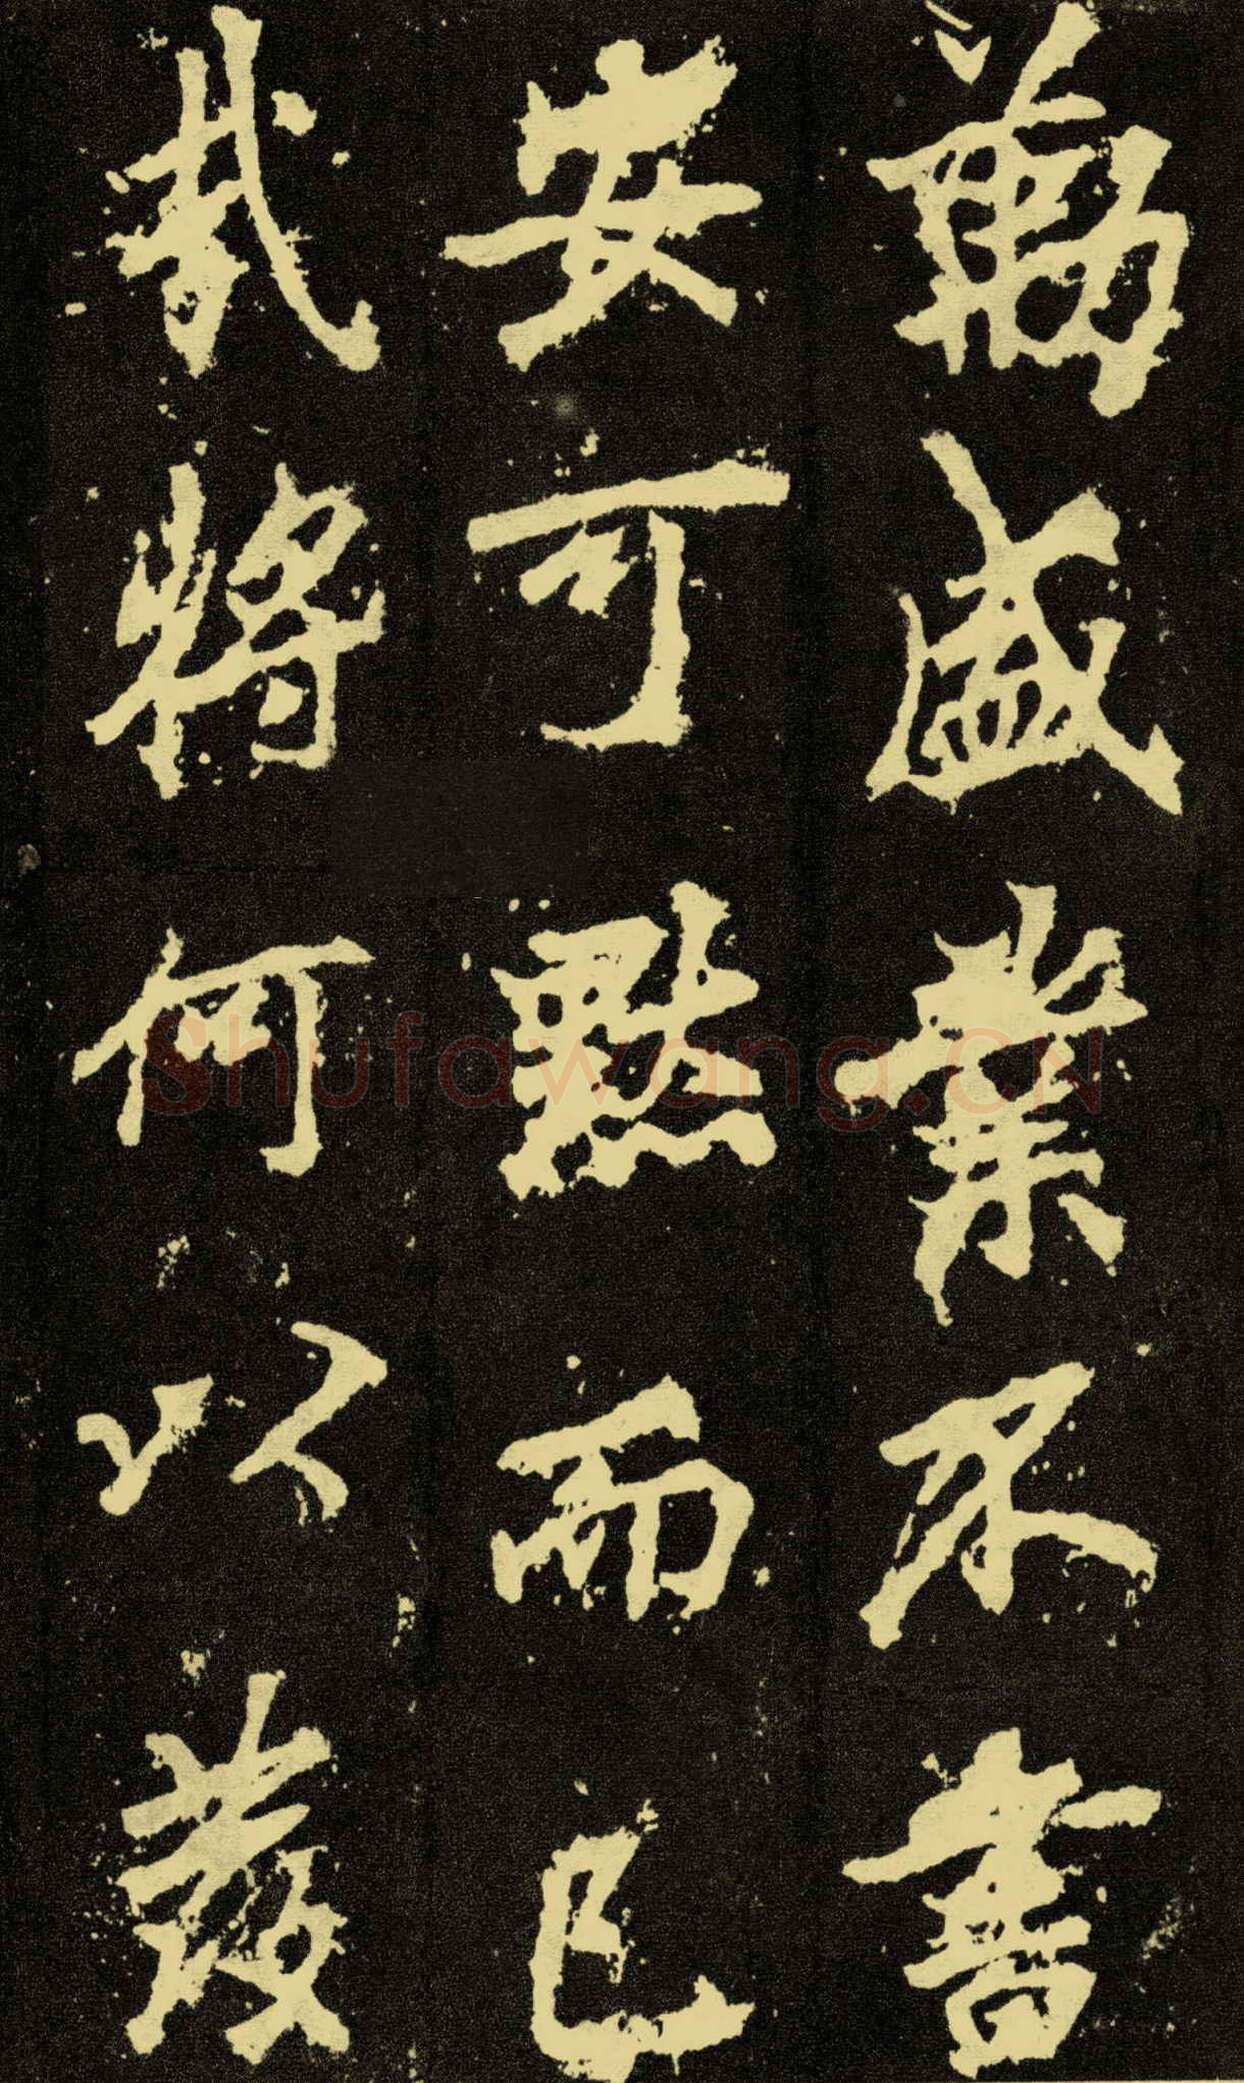 盛業不書
安可默而已
哉將何以發
Shufawang.CN